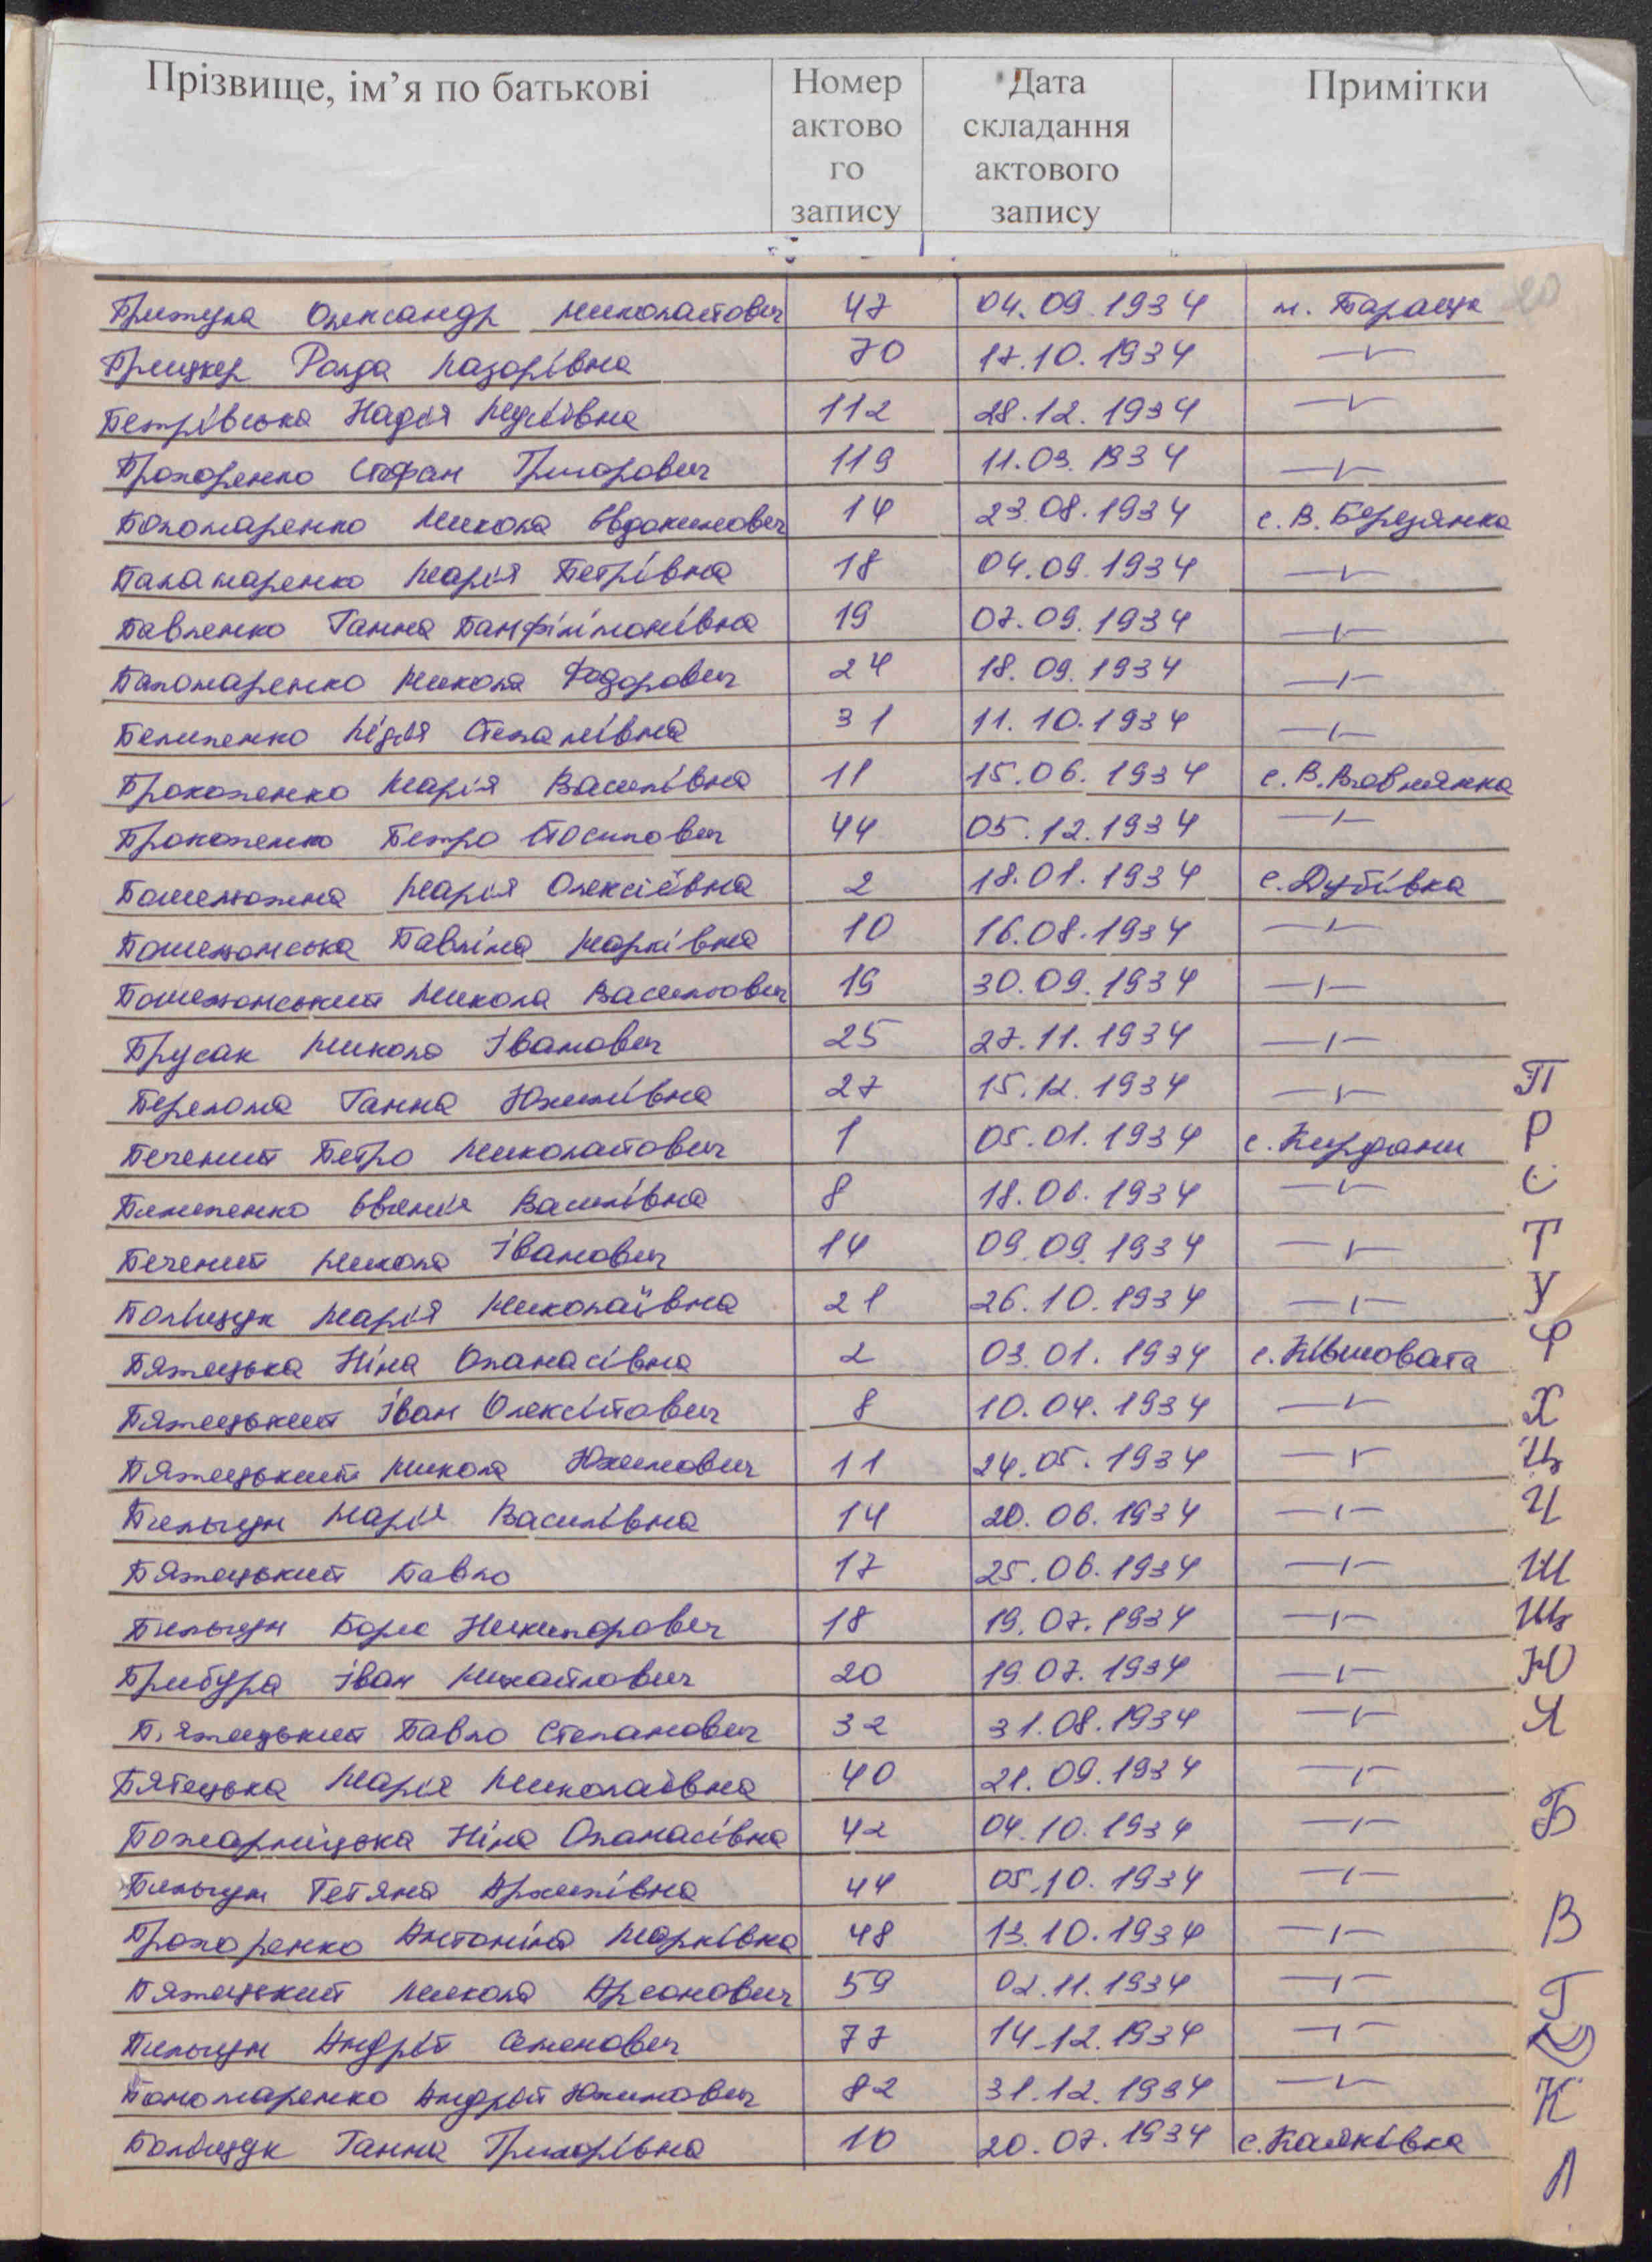 Прізвище, ім’я по батькові
Номер актово го запису
Дата складання актового запису
Примітки
20
Прижула Олександр Миколайович 47 04.09.1934 м. Тараща
Прицкер Роида Лазорівна 70 17.10.1934 —"—
Петрівська Надія 112 28.12.1934 —"—
Прохоренко Стефан Григорович 119 11.03.1934 —"—
Пономаренко Микола Євдокимович 14 23.08.1934 с. В. Березянка
Паламаренко Марія Петрівна 18 04.09.1934 —"—
Павленко Ганна Панфілімонівна 19 07.09.1934 —"—
Паномаренко Микола Федорович 24 18.09.1934 —"—
Пилипенко Лідія Степанівна 31 11.10.1934 —"—
Прокопенко Марія Василівна 11 15.06.1934 с. В. Вовнянка
Прокопенко Петро Йосипович 44 05.12.1934 —"—
Марія Олексіївна 2 18.01.1934 с. Дубівка
Павліна Марківна 10 16.08.1934 —"—
Микола Васильович 19 30.09.1934 —"—
Прусак Микола Іванович 25 27.11.1934 —"—
Перепома Ганна Юхимівна 27 15.12.1934 —"—
Печений Петро Миколайович 1 05.01.1934 с. Кирдани
Пилипенко Євгенія Василівна 8 18.06.1934 —"—
Печений Микола Іванович 14 09.09.1934 —"—
Поліщук Марія Миколаївна 21 26.10.1934 —"—
Пяжецька Ніна Опанасівна 2 03.01.1934 с. Ківшовата
Пяжецький Іван Олексійович 8 10.04.1934 —"—
Пяжецький Микола Юхимович 11 24.05.1934 —"—
Пильгун Марія Василівна 14 20.06.1934 —"—
Пяжецький Павло 17 25.06.1934 —"—
Пильгун Борис Никипорович 18 19.07.1934 —"—
Прибура Іван Михайлович 20 19.07.1934 —"—
П'яжецький Павло Степанович 32 31.08.1934 —"—
Пятецька Марія Миколаївна 40 21.09.1934 —"—
Пожарніцька Ніна Опанасівна 42 04.10.1934 —"—
Пильгун Тетяна Архипівна 44 05.10.1934 —"—
Прохоренко Антоніна Марківна 48 13.10.1934 —"—
Пяжецький Микола Арсонович 59 02.11.1934 —"—
Пильгун Андрій Семенович 77 14.12.1934 —"—
Пономаренко Андрій Юхимович 82 31.12.1934 —"—
Поліщук Ганна Григорівна 10 20.07.1934 с. Калинівка
П
Р
С
Т
У
Ф
Х
Ц
Ч
Ш
Щ
Ю
Я
Б
В
Г
Д
К
Л